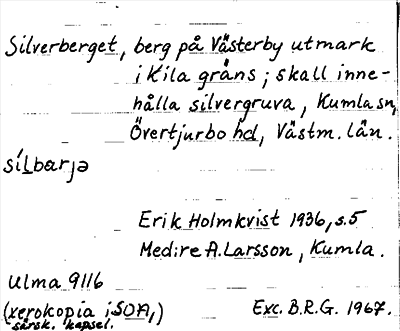 Silverberget, berg på Västerby utmark
i Kila gräns; skall inne-
hålla silvergruva, Kumla sn,
Övertjurbo hd, Västm. län.
sílbarjə
Erik Holmkvist 1936, s.5
Med: re A. Larsson, Kumla.
Ulma 9116
(xerokopia i SOA,) Exc. B.R.G. 1967.
särsk. kapsel.